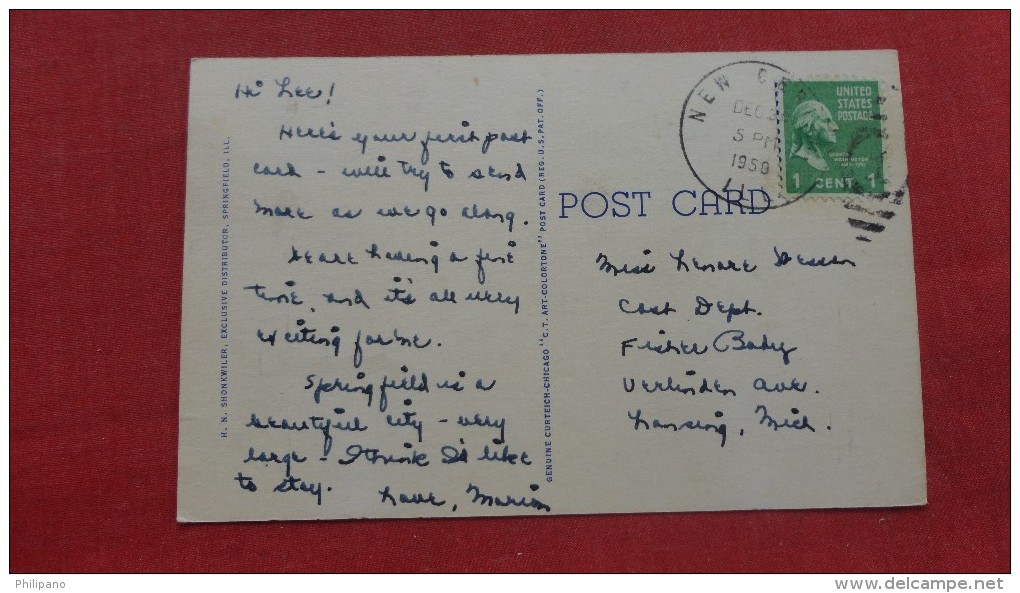 Hi Lee!
Here's your first post
card - will try to send
more as we go along.
We are having a fine
time, and it's all very
exciting for me.
Springfield is a
beautiful city - very
large - I think I'd like
to stay.
Love, Marion
H. N. SHONKWILER, EXCLUSIVE DISTRIBUTOR, SPRINGFIELD, ILL.
GENUINE CURTEICH-CHICAGO "C.T. ART-COLORTONE" POST CARD (REG. U.S. PAT. OFF.)
POST CARD
NEW
DEC
5 PM
1950
UNITED
STATES
POSTAGE
1 CENT 1
Miss Lenore
Cost Dept.
Fisher Body
Verlinden Ave.
Lansing, Mich.
Philipano
www.delcampe.net